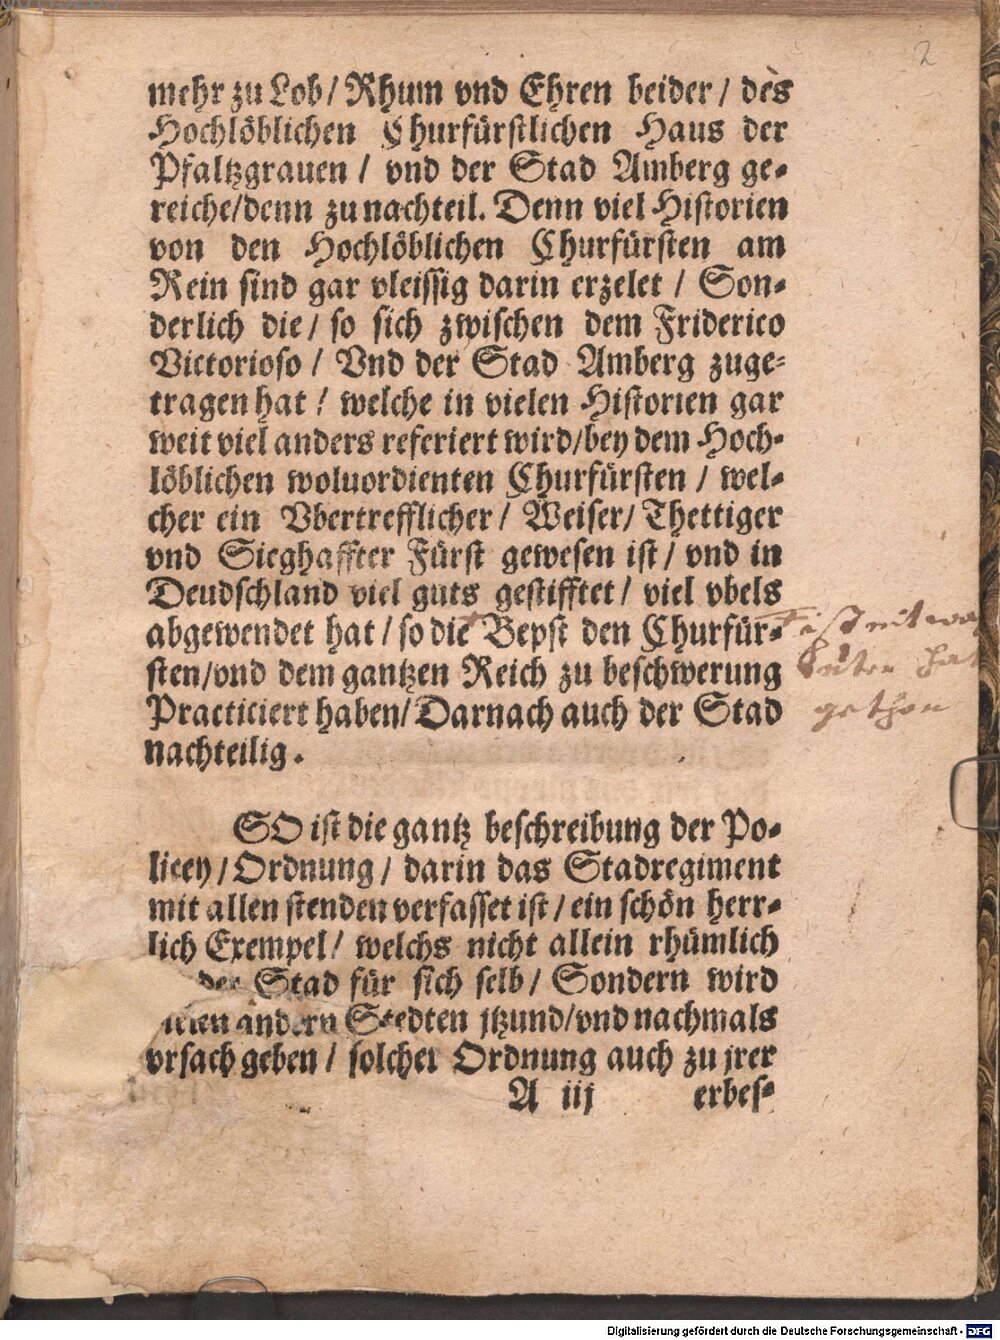 2
mehr zu Lob / Rhum vnd Ehren beider / des
Hochlöblichen Churfürstlichen Haus der
Pfaltzgrauen / vnd der Stad Amberg ge-
reiche/denn zu nachteil. Denn viel Historien
von den Hochlöblichen Churfürsten am
Rein sind gar vleissig darin erzelet / Son-
derlich die / so sich zwischen dem Friderico
Victorioso / Vnd der Stad Amberg zuge-
tragen hat / welche in vielen Historien gar
weit viel anders referiert wird/bey dem Hoch-
löblichen woluordienten Churfürsten / wel-
cher ein Vbertrefflicher / Weiser/ Thettiger
vnd Sieghaffter Fürst gewesen ist / vnd in
Deudschland viel guts gestifftet / viel vbels
abgewendet hat / so die Bepst den Churfür-
sten/vnd dem gantzen Reich zu beschwerung
Practiciert haben/ Darnach auch der Stad
nachteilig.
ist nit
hat
gethon
SO ist die gantz beschreibung der Po-
licey / Ordnung / darin das Stadregiment
mit allen stenden verfasset ist / ein schön herr-
lich Exempel / welchs nicht allein rhümlich
der Stad für sich selb / Sondern wird
andern Stedten jtzund/vnd nachmals
vrsach geben / solcher Ordnung auch zu jrer
A iij erbes-
Digitalisierung gefördert durch die Deutsche Forschungsgemeinschaft - DFG